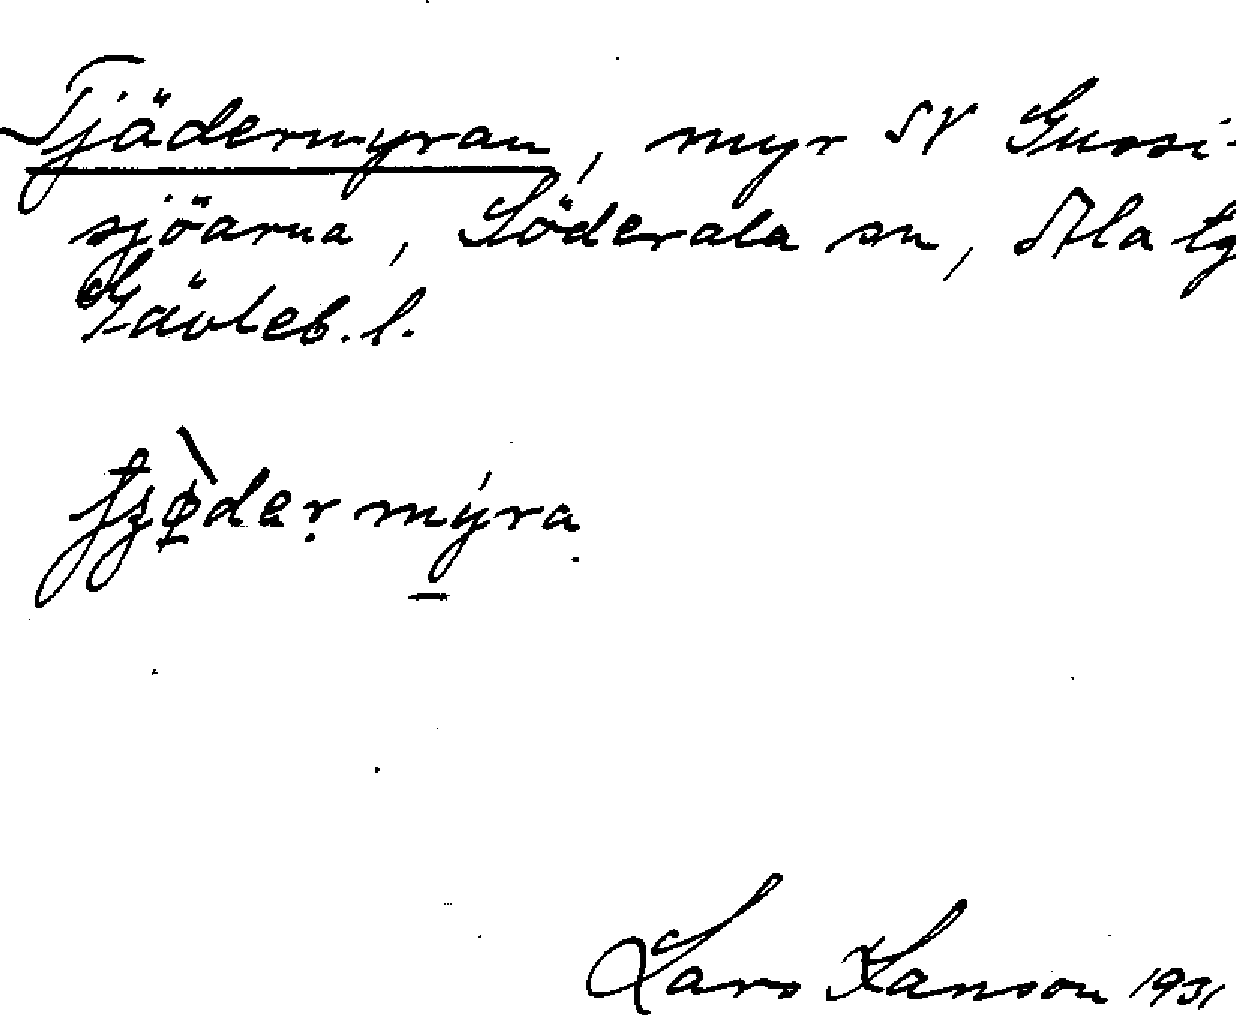 Tjädermyran, myr SV Gussi-
sjöarna, Söderala sn, Ala tg
Gävleb. l.
mýra
Lars Hanson 1931